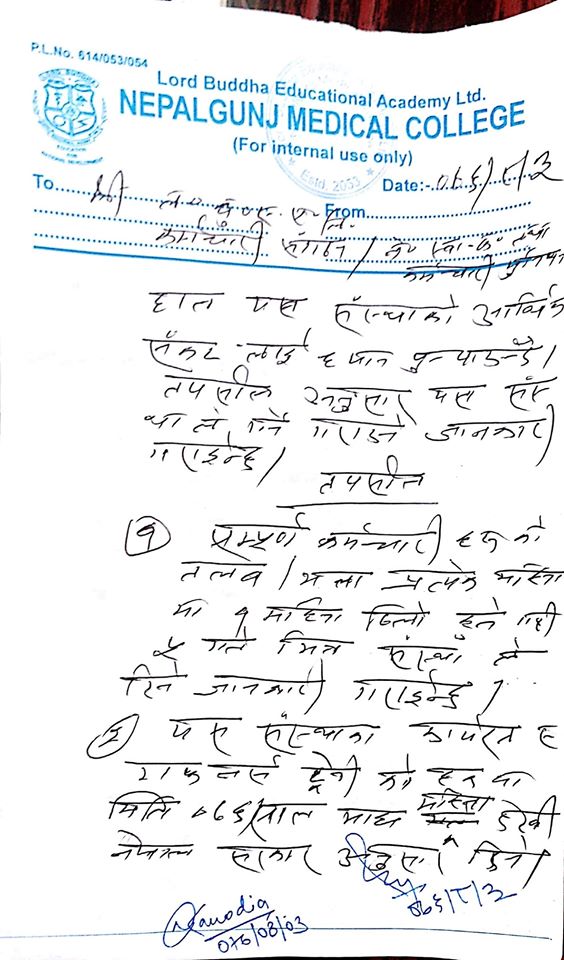 P.L.No. 614/053/054
Lord Buddha Educational Academy Ltd.
NEPALGUNJ MEDICAL COLLEGE
(For internal use only)
Estd. 2053
To..... श्री Date:-. ०७६/८/३
From.....
कर्मचारी संगठन /
कर्मचारी युनियन
हाल यस संस्थाको आर्थिक
संकट लाई ध्यान
तपसील अनुसार यस संस्
था ले जानकारी
गराईन्छ।
तपसील
१ सम्पूर्ण कर्मचारी हरु को
तलब / भत्ता प्रत्येक महिना
मा १ महिना ढिलो हुने गरी
५ गते भित्र संस्था ले
दिने जानकारी गराईन्छ।
२ यस संस्थाका कार्यरत
स्टाफ नर्स को हकमा
मिति ०७६ साल माघ महिना देखी
नेपाल सरकार अनुसार दिने।
०७६/८/३
076/08/03